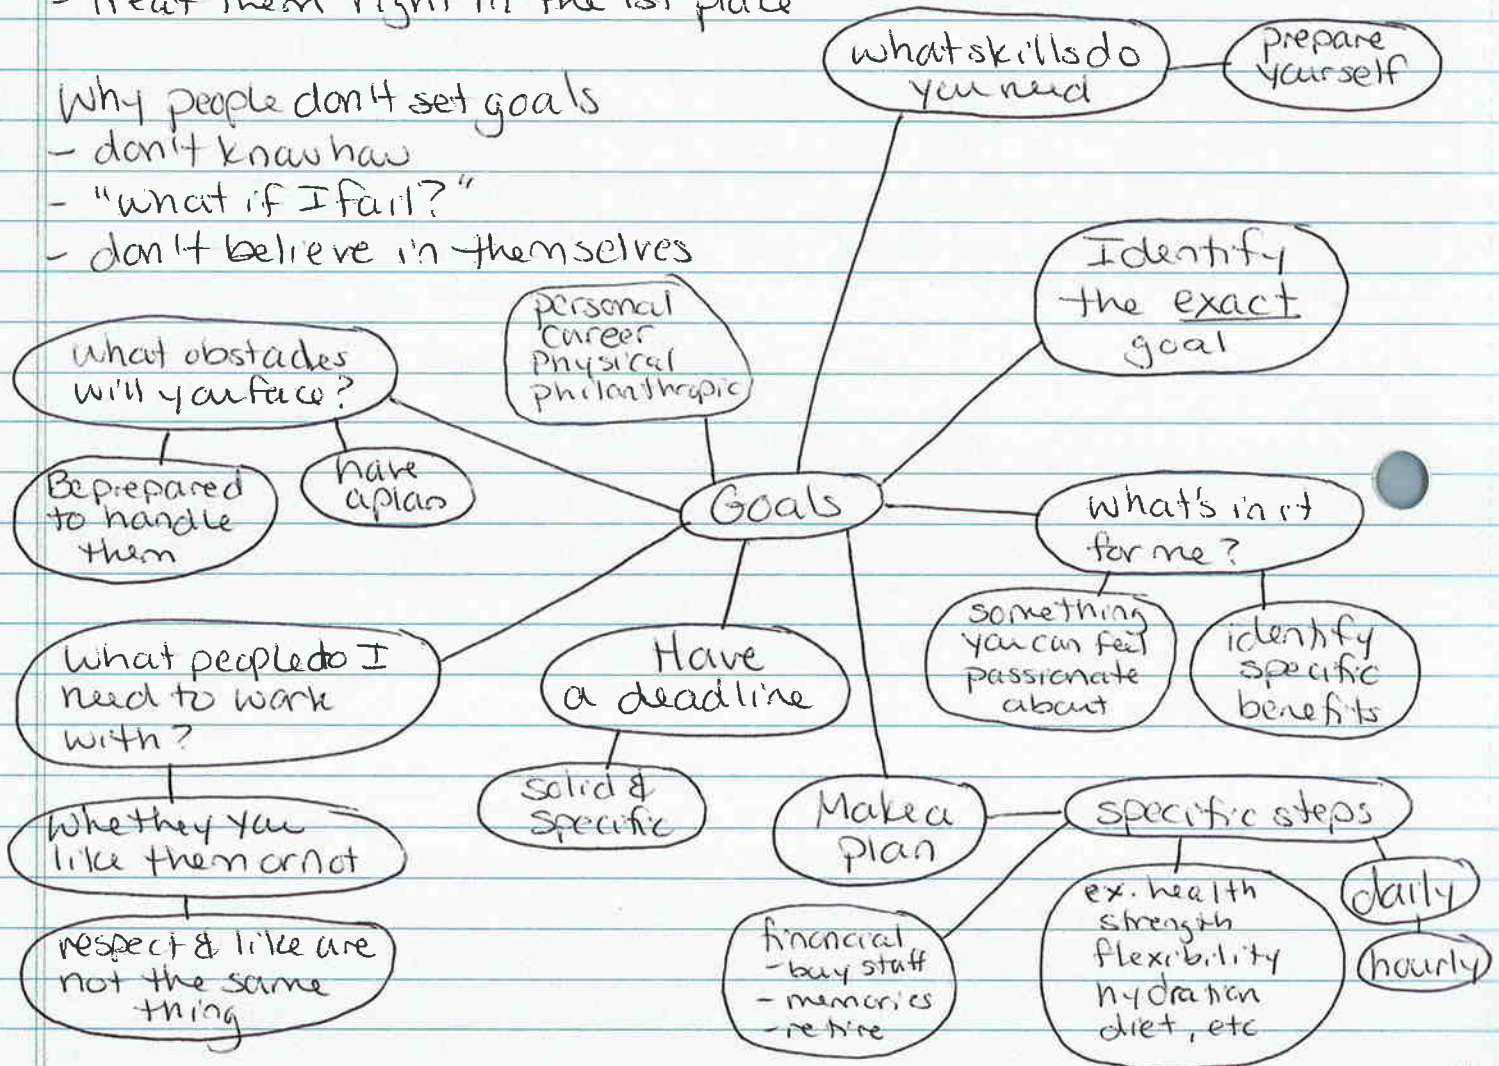 - Treat them right in the 1st place
Why people don't set goals
- don't know how
- "what if I fail?"
- don't believe in themselves
what skills do
you need
prepare
yourself
Identify
the exact
goal
personal
career
physical
philanthropic
what obstacles
will you face?
Be prepared
to handle
them
have
a plan
Goals
what's in it
for me?
something
you can feel
passionate
about
identify
specific
benefits
What people do I
need to work
with?
Whethey you
like them or not
respect & like are
not the same
thing
Have
a deadline
solid &
specific
Make a
plan
specific steps
daily
hourly
ex. health
strength
flexibility
hydration
diet, etc
financial
- buy stuff
- memories
- retire